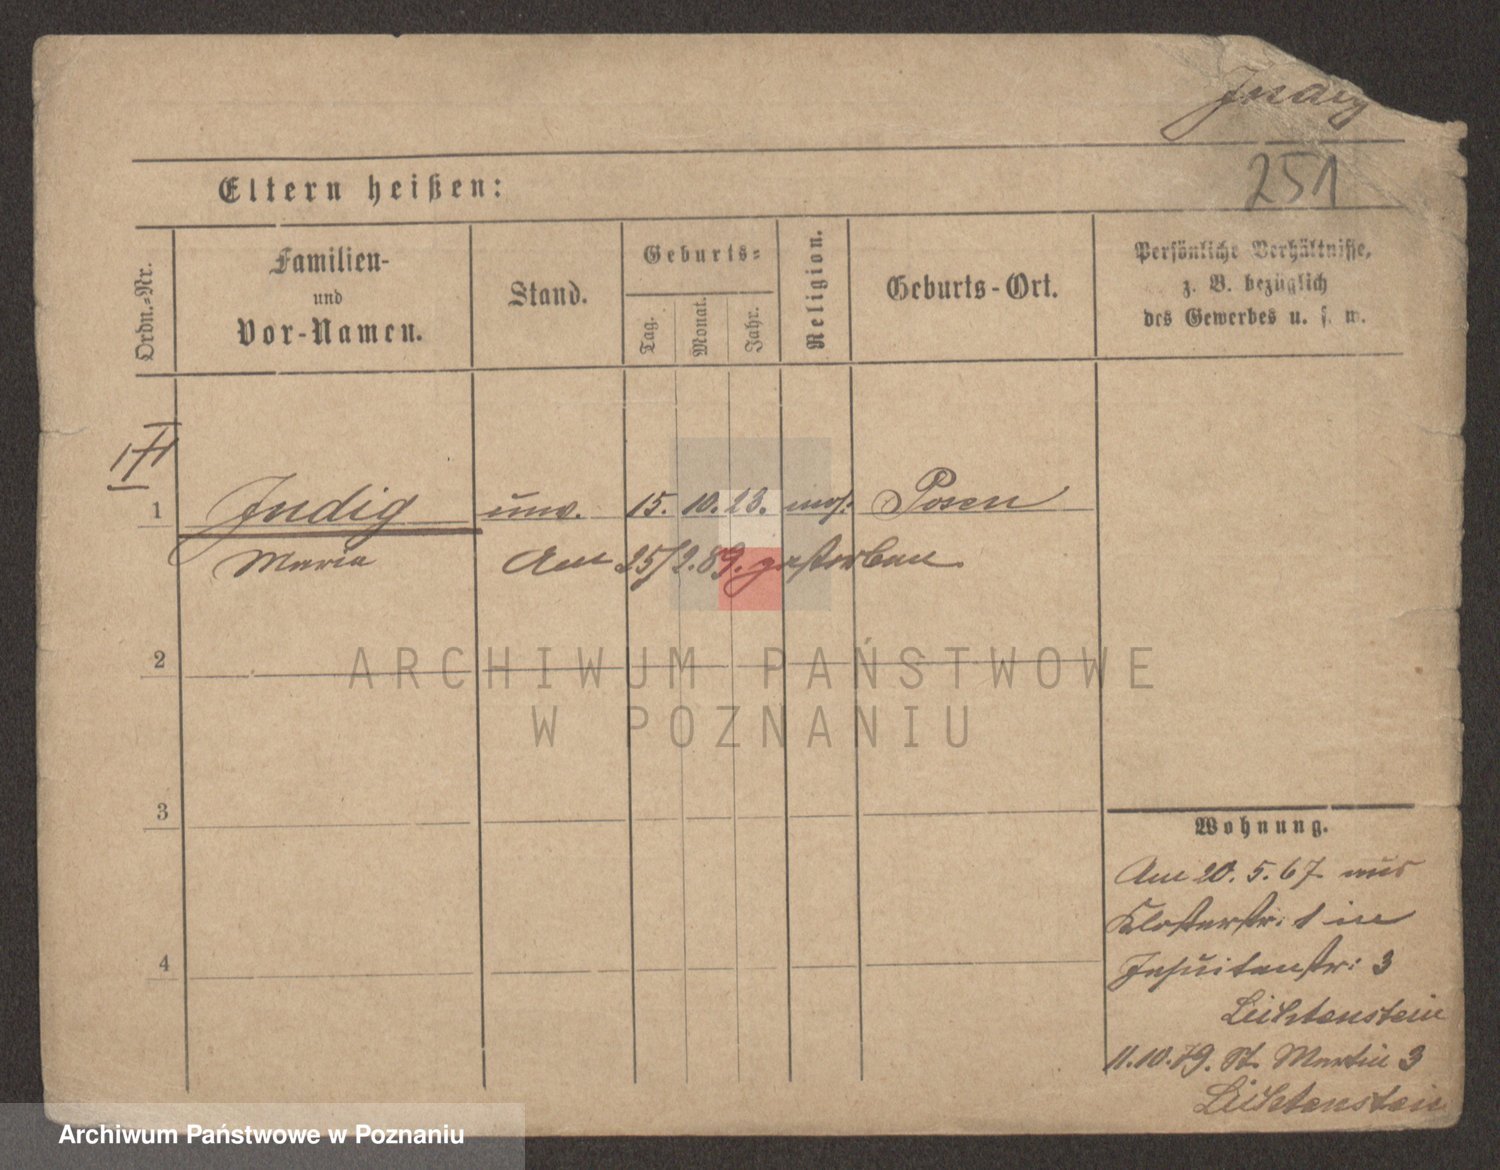 Indig
251
Eltern heißen:
Ordn.-Nr.
Familien-
und
Vor-Namen.
Stand.
Geburts-
Tag.
Monat.
Jahr.
Religion.
Geburts-Ort.
Persönliche Verhältnisse,
z. B. bezüglich
des Gewerbes u. s. w.
1 Indig unv. 15. 10. 23. mos: Posen
Maria Am 25/2.89. gestorben.
2
3
4
ARCHIWUM PAŃSTWOWE
W POZNANIU
Wohnung.
Am 20. 5. 67 aus
Klosterstr: 1 in
Jesuitenstr: 3
Lichtenstein
11.10.79. St. Martin 3
Lichtenstein
Archiwum Państwowe w Poznaniu